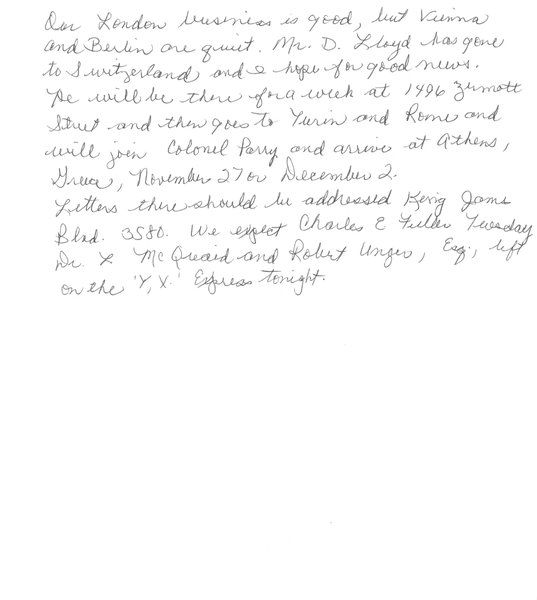 Our London business is good, but Vienna
and Berlin are quiet. Mr. D. Lloyd has gone
to Switzerland and I hope for good news.
He will be there for a week at 1496 Zermott
Street and then goes to Turin and Rome and
will join Colonel Parry and arrive at Athens,
Greece, November 27 or December 2.
Letters there should be addressed King James
Blvd. 3580. We expect Charles E Fuller Tuesday
Dr. L McQuaid and Robert Unger, Esq., left
on the 'Y, X.' Express tonight.